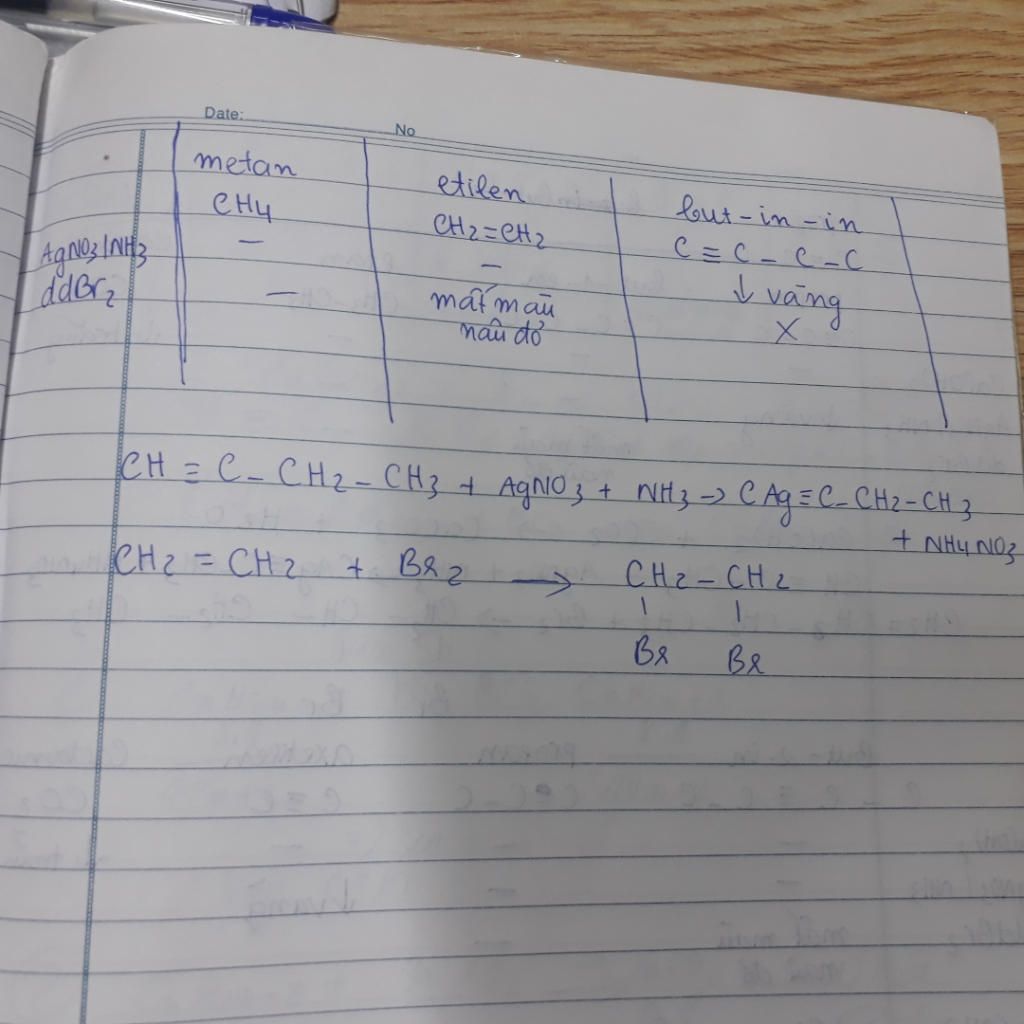 Date: No
metan etilen but-in-in
CH4 CH2=CH2 C≡C-C-C
AgNO3/NH3 - - ↓ vāng
ddBr2 - mất màu X
nâu đỏ
CH≡C-CH2-CH3 + AgNO3 + NH3 → CAg≡C-CH2-CH3
+ NH4NO3
CH2=CH2 + Br2 → CH2-CH2
Br Br